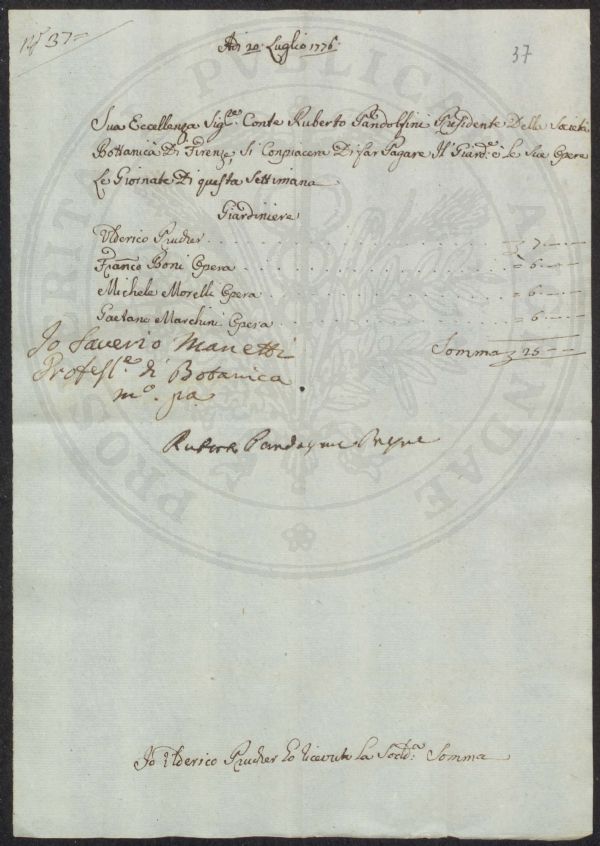 N° 37
37
Adi 20: Luglio 1776:
Sua Eccellenza Sig.re Conte Ruberto Pandolfini Presidente Della Società
Bottanica Di Firenze, Si Conpiacera Di far Pagare Il Giard.e e le Sue Opere
Le Giornate Di questa Settimana
Giardiniere
Ulderico Prucher . . . 7 —
Franco Boni Opera . . . = 6 —
Michele Morelli Opera . . . = 6 —
Gaetano Marchini Opera . . . = 6 —
Somma 25 —
Io Saverio Manetti
Profess.e di Botanica
m.o pa
Ruberto Pandolfini
Io Ulderico Prucher ho ricevuto La Sodd.a Somma
PVBLICA
PROSPERITA